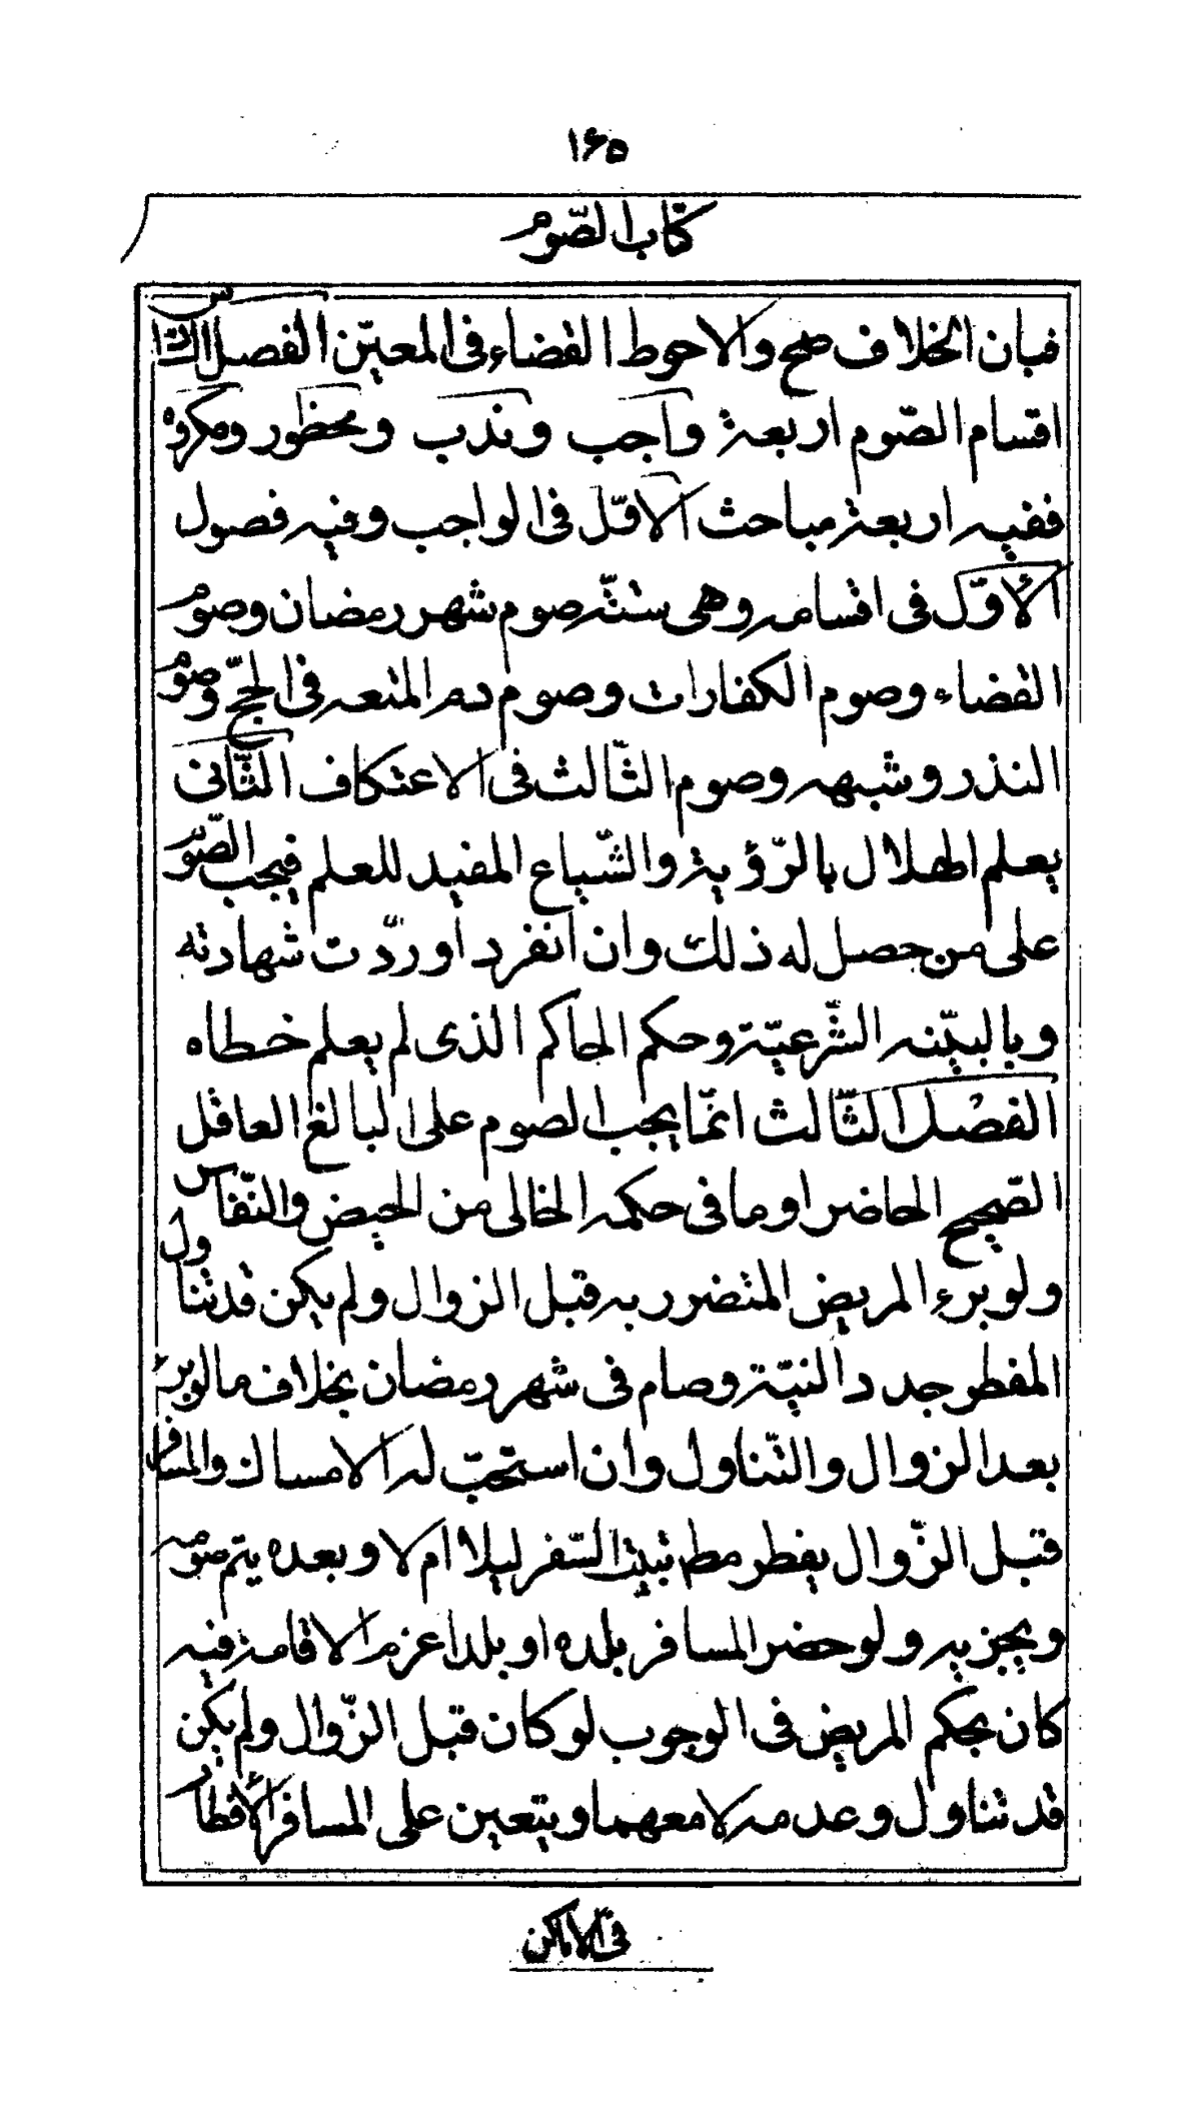 ۱۶۵
كتاب الصّوم
فبان الخلاف صح والاحوط القضاء فى المعيّن الفصل السادس
اقسام الصّوم اربعة واجب وندب ومحظور ومكروه
ففيه اربعة مباحث الاوّل فى الواجب وفيه فصول
الأوّل فى اقسامه وهى ستّة صوم شهر رمضان وصوم
القضاء وصوم الكفارات وصوم دم المتعه فى الحجّ وصوم
النذر وشبهه وصوم الثّالث فى الاعتكاف الثّانى
يعلم الهلال بالرّؤية والشّياع المفيد للعلم فيجب الصّوم
على من حصل له ذلك وان انفرد او ردّت شهادته
وبالبيّنه الشّرعيّة وحكم الحاكم الذى لم يعلم خطاه
الفصل الثّالث انّما يجب الصوم على البالغ العاقل
الصّحيح الحاضر او ما فى حكمه الخالى من الحيض والنّفاس
ولو برء المريض المتضرر به قبل الزوال ولم يكن قد تناول
المفطر جدد النيّة وصام فى شهر رمضان بخلاف ما لو برء
بعد الزوال والتّناول وان استحبّ له الامساك والمسافر
قبل الزّوال يفطر مط تبييت السّفر ليلا ام لا وبعده يتم صومه
ويجزيه ولو حضر المسافر بلده او بلدا عزم الاقامة فيه
كان بحكم المريض فى الوجوب لو كان قبل الزّوال ولم يكن
قد تناول وعدمه لا معهما ويتعين على المسافر الأفطار
فى الاماكن